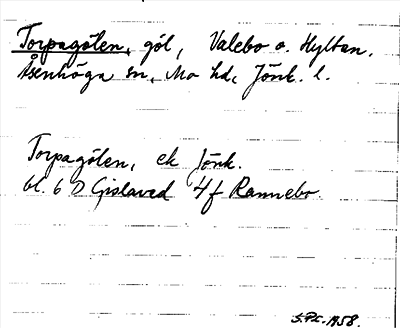 Torpagölen, göl, Valebo o. Hyltan,
Åsenhöga sn, Mo hd, Jönk. l.
Torpagölen, ek Jönk.
bl. 6 D Gislaved 4f Rannebo.
S.Pt. 1958.